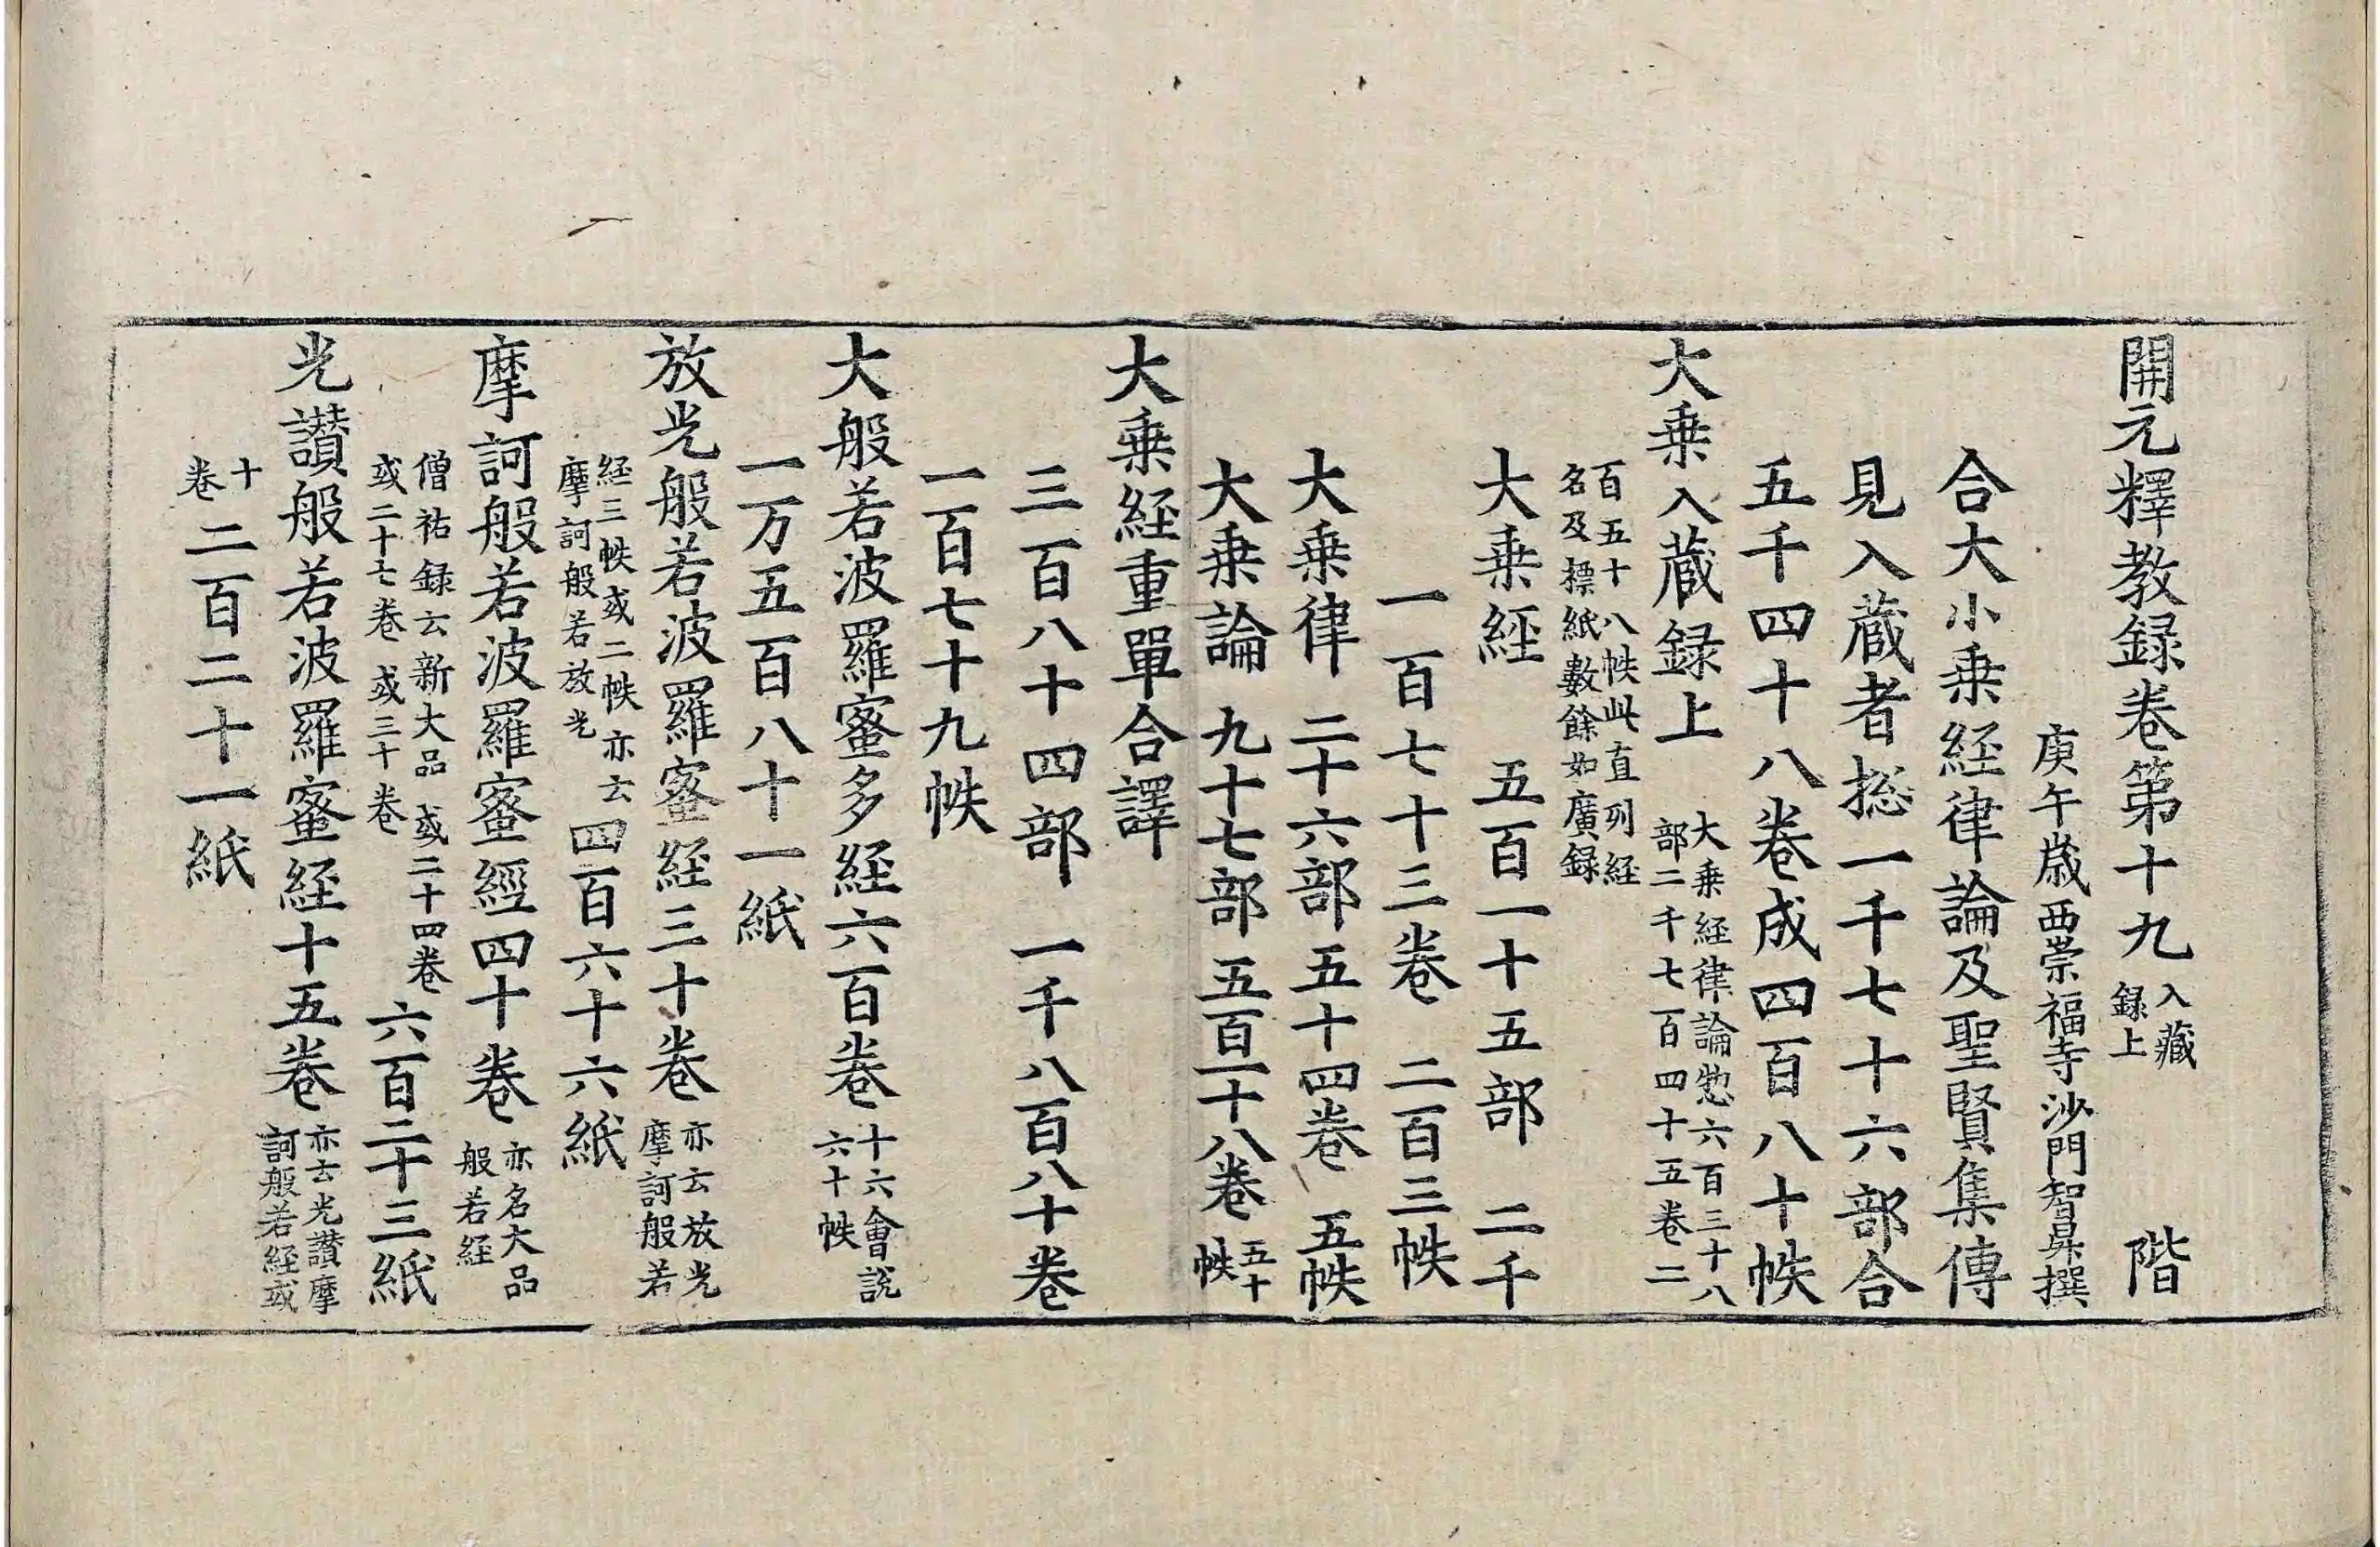 開元釋教録卷第十九 入藏録上 階
庚午歲西崇福寺沙門智昇撰
合大小乗経律論及聖賢集傳
見入蔵者捴一千七十六部合
五千四十八卷成四百八十帙
大乗入蔵録上 大乗経律論惣六百三十八部二千七百四十五卷二
百五十八帙此直列経名及摽紙數餘如廣録
大乗経 五百一十五部 二千
一百七十三卷 二百三帙
大乗律 二十六部 五十四卷 五帙
大乗論 九十七部 五百一十八卷 五十帙
大乗経重單合譯
三百八十四部 一千八百八十卷
一百七十九帙
大般若波羅蜜多経六百卷 十六會說六十帙
一万五百八十一紙
放光般若波羅蜜経三十卷 亦云放光摩訶般若
経三帙或二帙亦云摩訶般若放光 四百六十六紙
摩訶般若波羅蜜經四十卷 亦名大品般若経
僧祐録云新大品或二十四卷或二十七卷或三十卷 六百二十三紙
光讃般若波羅蜜経十五卷 亦云光讃摩訶般若経或
十卷 二百二十一紙